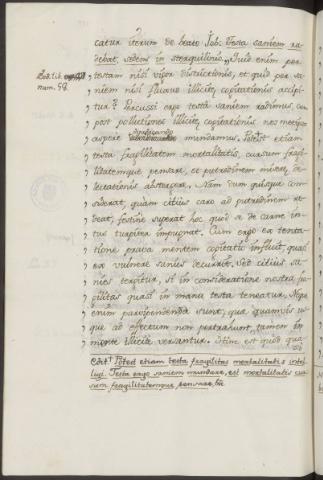 catur iterum de beato Job: Testa saniem ra-
debat, sedens in sterquilinio. „Quid enim per
„ testam nisi vigor districtionis, et quid per sa-
„ niem nisi fluxus illicitæ cogitationis accipi-
„ tur? Percussi ergo testa saniem radimus, cum
„ post pollutiones illicitæ cogitationis nosmetipsos
„ aspere dijudicando mundamus. Potest etiam
„ testa fragilitatem mortalitatis, cursum fragi-
„ litatemque pensare, et putredinem miseræ de-
„ lectationis abstergere. Nam dum quisque con-
„ siderat, quàm citius caro ad putredinem re-
„ deat, festine superat hoc quod se de carne in-
„ tus turpiter impugnat. Cum ergo ex tenta-
„ tione prava mentem cogitatio influit, quasi
„ ex vulnere sanies decurrit. Sed citius sa-
„ nies tergitur, si in consideratione nostra fra-
„ gilitas quasi in manu testa teneatur. Neque
„ enim parvipendenda sunt, quæ quamvis us-
„ que ad effectum non pertrahunt, tamen in
„ mente illicite versantur. Etim est quod qua-
num. 58.
Edit. Potest etiam testa fragilitas mortalitatis intel-
ligi. Testa ergo saniem mundare, est mortalitatis cur-
sum fragilitatemque pensare,